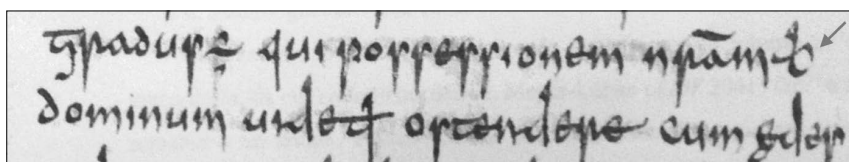 gradus ÷ qui possessionem nr̄am
dominum uidet̵ ostendere cum